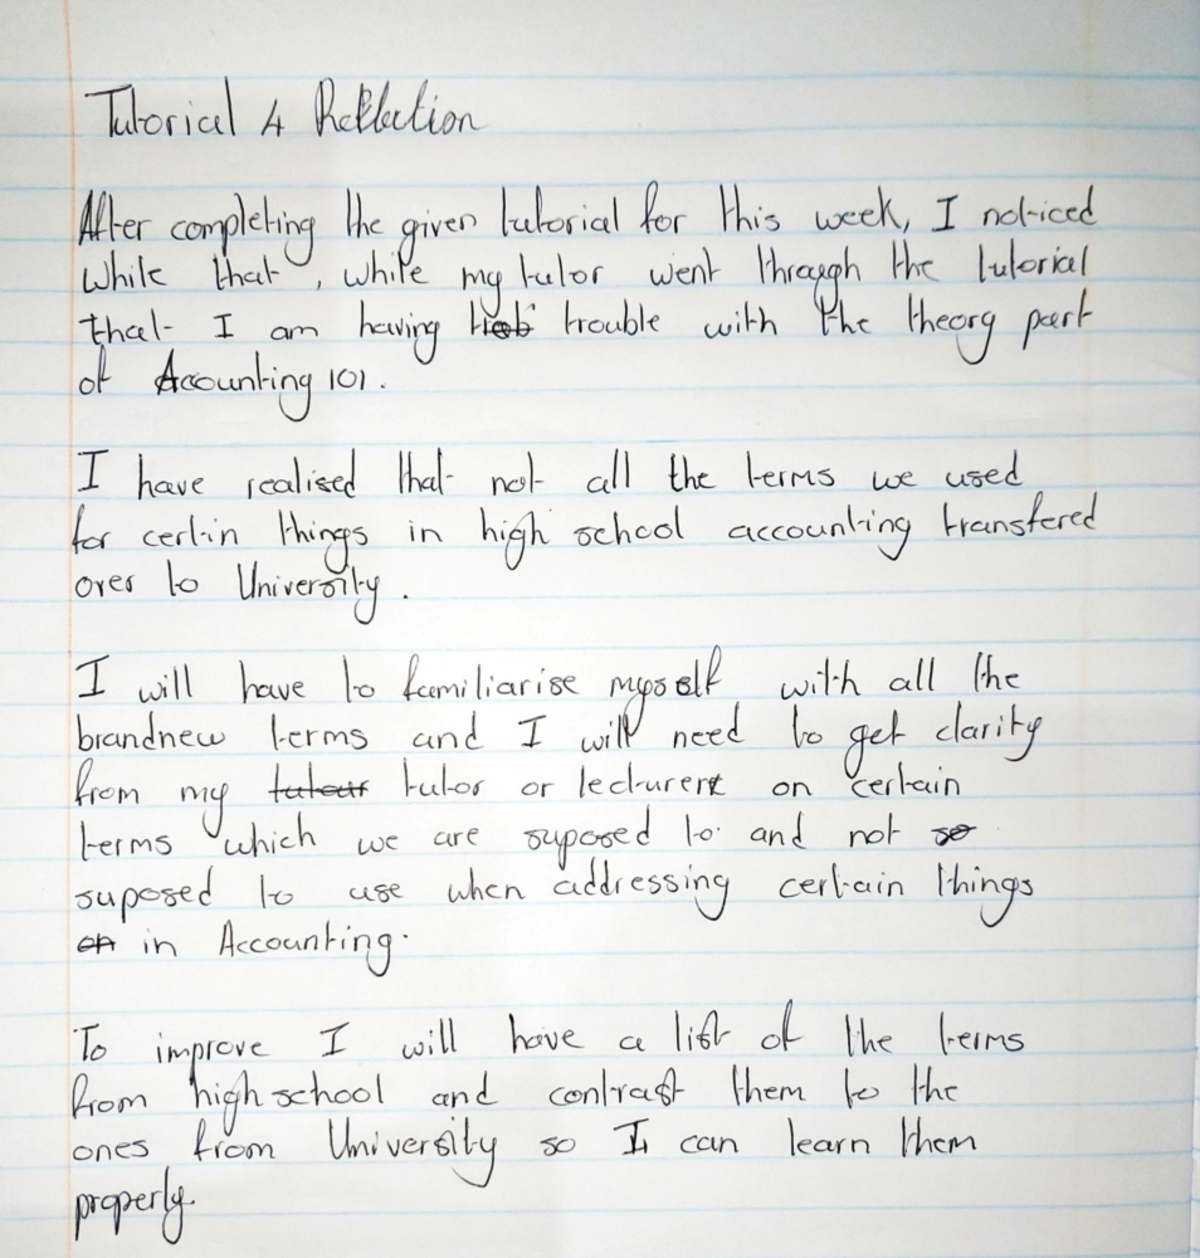 Tutorial 4 Reflection
After completing the given tutorial for this week, I noticed
while that, while my tutor went through the tutorial
that I am having trouble with the theory part
of Accounting 101.
I have realised that not all the terms we used
for certin things in high school accounting transfered
over to University.
I will have to familiarise myself with all the
brandnew terms and I will need to get clarity
from my tutour tutor or lecturer on certain
terms which we are suposed to and not so
suposed to use when addressing certain things
on in Accounting.
To improve I will have a list of the terms
from high school and contrast them to the
ones from University so I can learn them
properly.